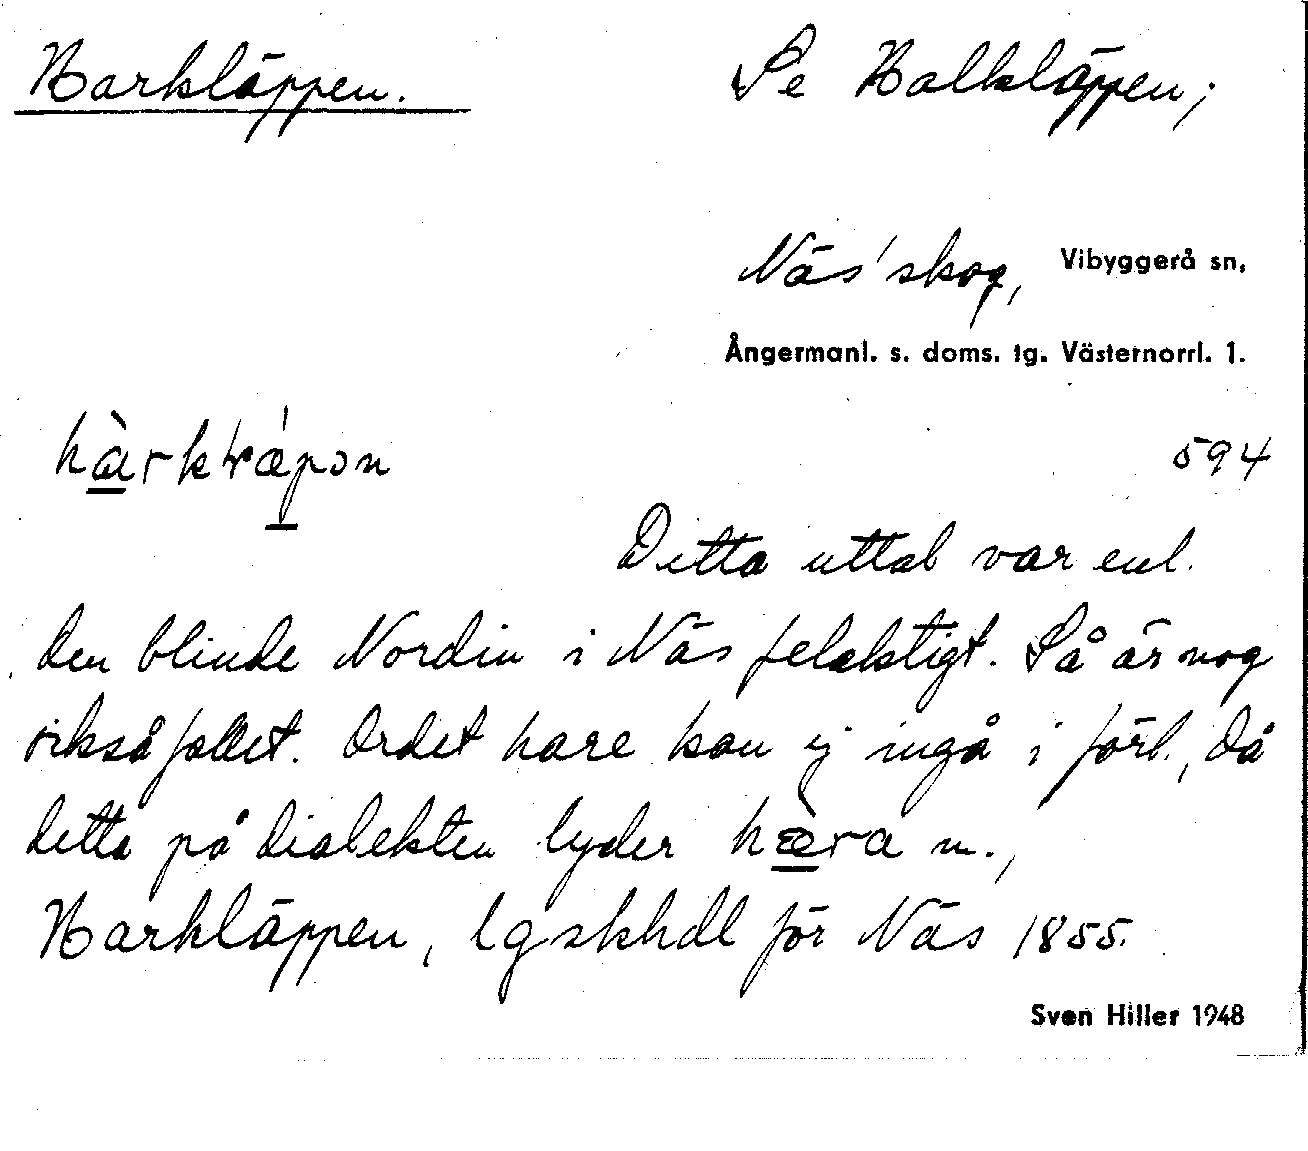 Harkläppen. Se Halkläppen;
Näs' skog, Vibyggerå sn,
Ångermanl. s. doms. tg. Västernorrl. l.
594
Detta uttal var enl.
den blinde Nordin i Näs felaktigt. Så är nog
också fallet. Ordet hare kan ej ingå i förl., då
detta på dialekten lyder hæ̀ra m.,
Harkläppen, lgskhdl för Näs 1855.
Sven Hiller 1948